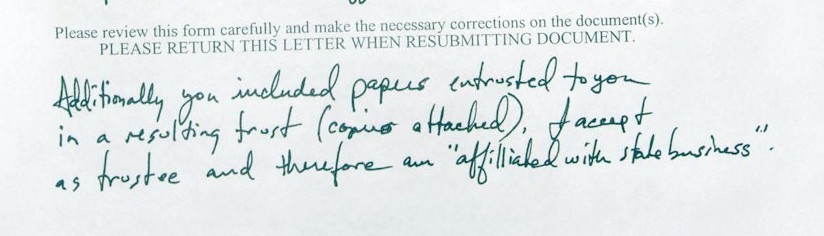 Please review this form carefully and make the necessary corrections on the document(s).
PLEASE RETURN THIS LETTER WHEN RESUBMITTING DOCUMENT.
Additionally you included papers entrusted to you
in a resulting trust (copies attached), I accept
as trustee and therefore am "affilliated with state business".